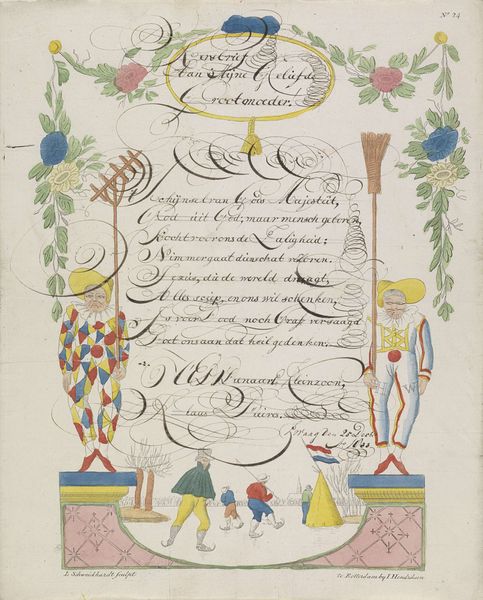 No. 24
Kerstrief
Aan Mijne Geliefde
Grootmoeder.
Schijnsel van Gods Majesteit,
God uit God; maar mensch geboren,
Kocht voor ons de Zaligheid;
Nimmer gaat die schat verloren.
Jezus, die de wereld draagt,
Alles schep, en ons wil schenken,
Is voor Dood noch Graf versaagd
Doet ons aan dat heil gedenken.
UEd Dienaar Kleinzoon,
Klaas
Den 25 Decb
Ao 18
L. Schweickhardt sculpt.
Te Rotterdam by J. Hendriksen